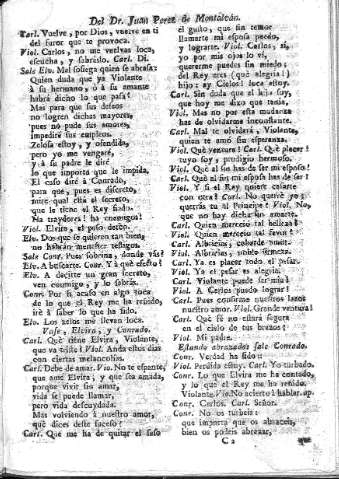 Del Dr. Juan Perez de Montalván.
Carl. Vuelve, por Dios, vuelve en ti
del furor que te provoca.
Viol. Carlos, no me vuelvas loca,
escucha, y sabráslo. Carl. Di.
Sale Elv. Mal sosiega quien se abrasa:
Quien duda que ya Violante
á su hermano, ó á su amante
habrá dicho lo que pasa!
Mas para que sus deseos
no logren dichas mayores,
pues no pude sus amores,
impediré sus empleos.
Zelosa estoy, y ofendida,
pero yo me vengaré,
y á su padre le diré
lo que importa que le impida.
El caso diré á Conrado,
para que, pues es discreto,
mire qual está el secreto,
que le tiene el Rey fiado.
Ha traydores! ha enemigos!
Viol. Elvira, el paso detén.
Elv. Dos que se quieren tan bien,
no habrán menester testigos.
Sale Conr. Pues sobrina, donde vás?
Elv. A buscarte. Conr. Y á qué efecto?
Elv. A decirte un gran secreto,
ven conmigo, y lo sabrás.
Conr. Por si acaso en algo toca
de lo que el Rey me ha reñido,
iré á saber lo que ha sido.
Elv. Los zelos me llevan loca.
Vase, Elvira, y Conrado.
Carl. Qué tiene Elvira, Violante,
que va triste? Viol. Anda estos dias
con ciertas melancolías.
Carl. Debe de amar. Vio. No te espante,
que ame Elvira, y que sea amada,
porque vivir sin amar,
vida se puede llamar,
pero vida descuydada.
Mas volviendo á nuestro amor,
qué dices deste suceso?
Carl. Que me ha de quitar el seso
el gusto, que sin temor
llamarte mi esposa puedo,
y lograrte. Viol. Carlos, sí,
yo por mis ojos lo ví,
querernos puedes sin miedo:
del Rey eres (qué alegria!)
hijo: ay Cielos! loca estoy.
Carl. Sin duda que el hijo soy,
que hoy me dixo que tenia,
Viol. Mas no por esta mudanza
has de olvidarme inconstante.
Carl. Mal te olvidará, Violante,
quien te amó sin esperanza.
Viol. Qué ventura! Carl. Qué placer!
tuyo soy, prodigio hermoso.
Viol. Qué al fin has de ser mi esposo!
Carl. Qué al fin mi esposa has de ser!
Viol. Y si el Rey quiere casarte
con otra? Carl. No querré yo;
querrás tu al Principe? Viol. No,
que no hay dicha sin amarte.
Carl. Quien mereció tal belleza!
Viol. Quien mereció tal favor!
Carl. Albricias, cobarde amor.
Viol. Albricias, noble firmeza.
Carl. Ya es placer todo el pesar.
Viol. Ya el pesar es alegria.
Carl. Violante puede ser mia!
Viol. A Carlos puedo lograr!
Carl. Pues confirme nuestros lazos
nuestro amor. Viol. Grande ventura!
Carl. Qué fé no estará segura
en el cielo de tus brazos!
Viol. Mi padre.
Estando abrazados sale Conrado.
Conr. Verdad ha sido!
Viol. Perdida estoy. Carl. Yo turbado.
Conr. Lo que Elvira me ha contado,
y lo que el Rey me ha reñido.
Violante. Vio. No acierto á hablar. ap.
Conr. Carlos. Carl. Señor.
Conr. No os turbeis:
que importa que os abraceis,
bien os podeis abrazar,
C 2
que